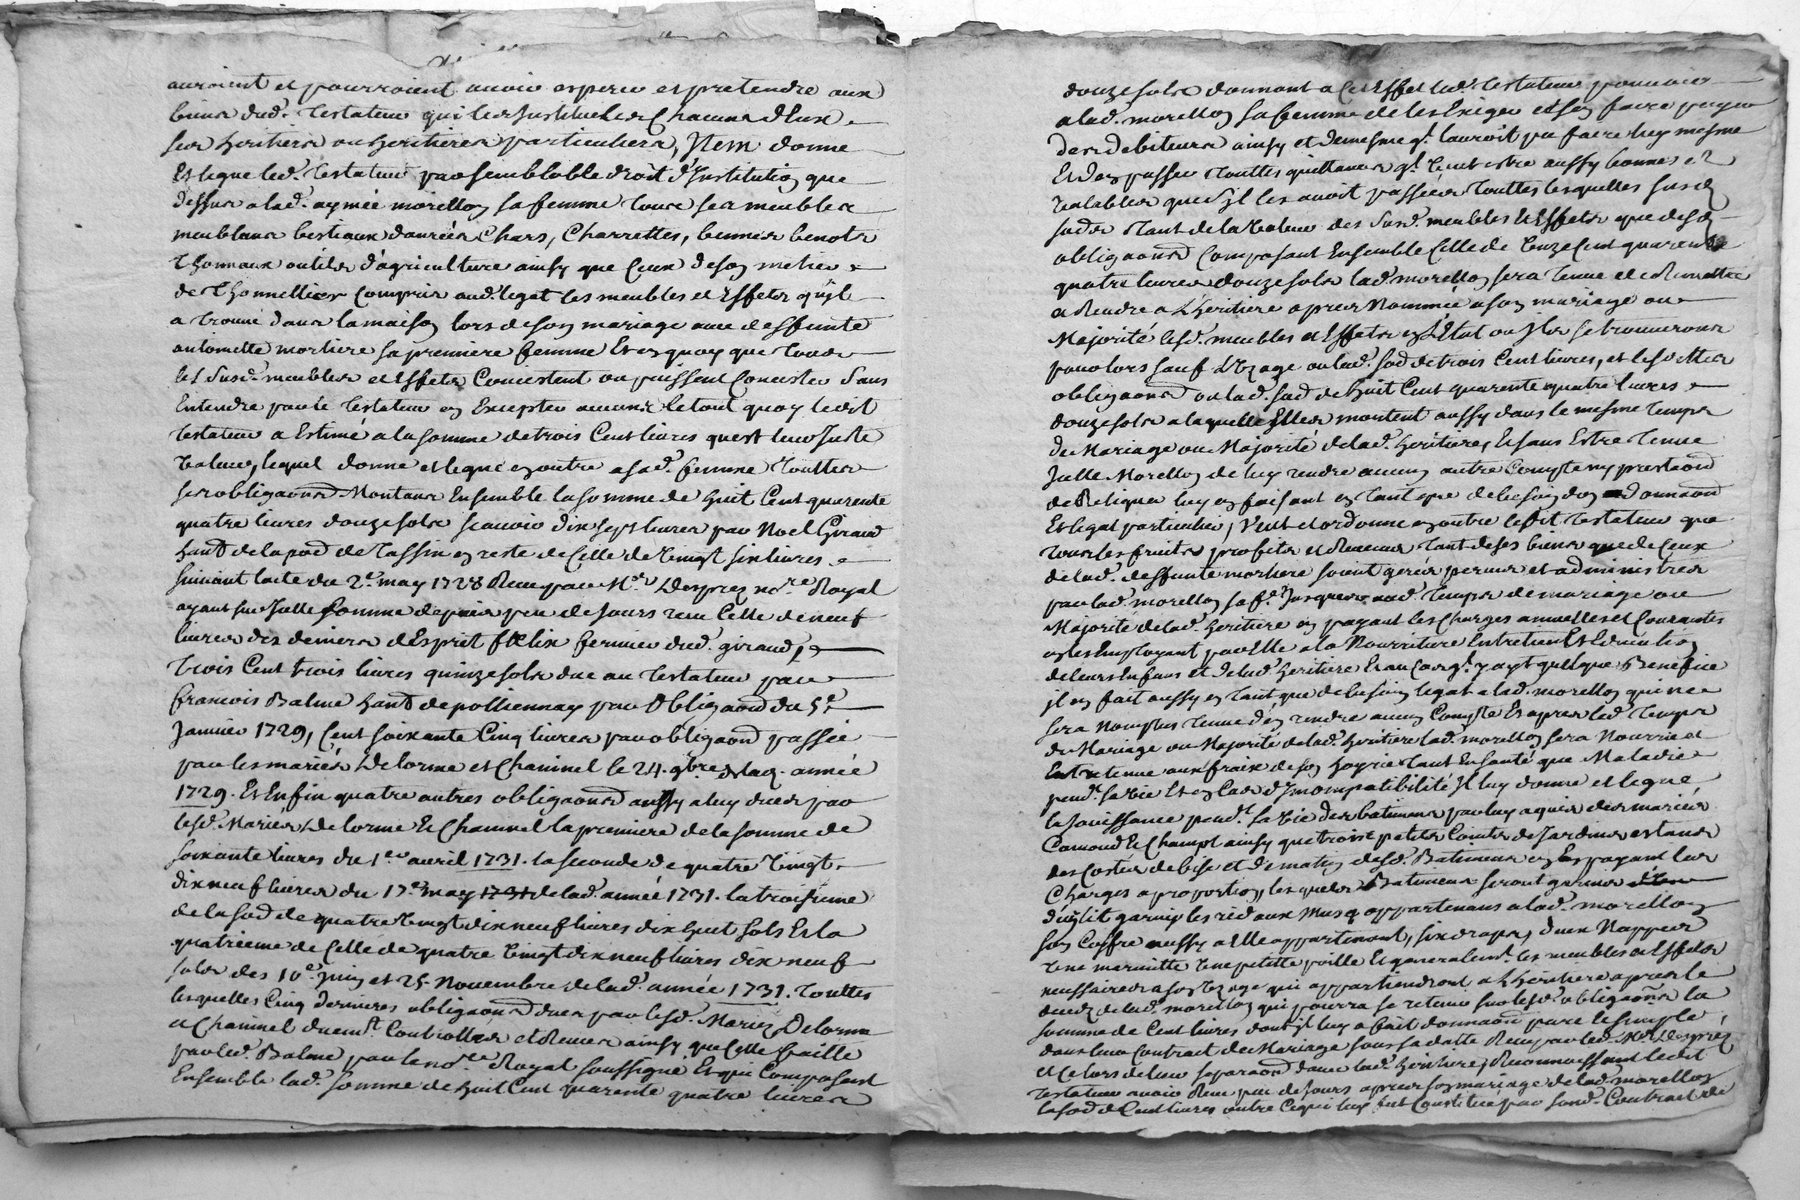 auroient et pourroient avoir esperer et pretendre aux
biens dud. Testateur qu'il les Institue les Chacuns d'Eux
ses heritiers ou heritieres particuliers, Item donne
Et legue led. Testateur par semblable droit d'Institution que
dessus a lad. aymée morellon sa femme Tous ses meubles
meublans bestiaux danrées Chars, Charrettes, bennes benots
Thonneaux outils d'agriculture ainsy que Ceux de son metier
de Thonnellier Compris aud. legat les meubles et Effets qu'il
a trouvé dans la maison lors de son mariage avec deffunte
antoinette mortiere sa premiere femme Et en quoy que Tous
les susd. meubles et Effets Concistent ou puissent Concister Sans
Entendre par le Testateur en Excepter aucuns le tout quoy ledit
Testateur a Estimé a la somme de trois Cent livres quest leur Juste
valeur, lequel donne et legue en outre a sad. femme Touttes
ses obligaons Montans Ensemble la somme de huit Cent quarente
quatre livres douze sols scavoir dix sept livres par Noel Giraud
habt de la par de Tassin en reste de Celle de vingt six livres
suivant l'acte du 2e may 1728 Receu par Me Desprez nore Royal
ayant sur Jcelle somme depuis peu de Jours receu Celle de neuf
livres des deniers d'Esprit felix fermier dud. giraud,
Trois Cent trois livres quinze sols due au Testateur par
francois Balme habt de pollionnay par obligaon du 5e
Janvier 1729, Cent soixante Cinq livres par obligaon passée
par les mariés Delorme et Chaninel le 24. 9bre de lad. année
1729. Et Enfin quatre autres obligaons aussy a luy dues par
lesd. Mariés Delorme Et Chaninel la premiere de la somme de
soixante livres du 1er avril 1731. la seconde de quatre vingt
dix neuf livres du 17e may 1731 de lad. année 1731. la troisieme
de la some de quatre vingt dix neuf livres dix huit sols Et la
quatrieme de Celle de quatre vingt dix neuf livres dix neuf
sols des 10e Juin et 25 Novembre de lad. année 1731. Touttes
lesquelles Cinq dernieres obligaons dues par lesd. Mariés Delorme
et Chaninel duemt. Controllées et Receues ainsy que Celle faitte
par led. Balme par le nore Royal soussigné Et qui Composent
Ensemble lad. somme de huit Cent quarente quatre livres
douze sols donnant a Cet Effet led. Testateur pouvoir
a lad. morellon sa femme de les Exiger et s'en faire payer
des debiteurs ainsy et de mesme ql. lauroit pu faire luy mesme
Et d'en passer Touttes quittances ql. Tout estre aussy bonnes et
valables que s'jl les avoit passées Touttes lesquelles susd.
sodes Tant de la valeur des susd. meubles et Effets que desd.
obligaons Composant Ensemble Celle de Onze Cent quarente
quatre livres douze sols lad. morellon sera Tenue et de Remettre
a Rendre a l'heritiere apres Nommée a son mariage ou
Majorité lesd. meubles et Effets en l'Etat ou jls se trouveront
pour lors sauf l'Vzage ou lad. sode de trois Cent livres, et lesdittes
obligaons ou lad. sode de huit Cent quarente quatre livres
douze sols a laquelle Elles montent aussy dans le mesme Temps
de Mariage ou Majorité de lad. heritiere, Et sans Estre Tenue
Jcelle Morellon de luy rendre aucun autre Compte ny prestaon
de Reliqua luy en faisant en Tant que de besoin don donnaon
Et legat particulier, Veut et ordonne en outre ledit Testateur que
Tous les fruits profits et Revenus Tant de ses biens que de Ceux
de lad. deffunte mortiere soient geres percus et administres
par lad. morellon sa fe. Jusques aud. Temps de mariage ou
Majorité de lad. heritiere en payant les Charges annuelles et Courantes
et les Employant par Elle a la Nourriture Entretien Et Education
de leurs Enfans et de lad. heritiere Et au Cas ql. y ayt quelque Benefice
jl en fait aussy en Tant que de besoin legat a lad. morellon qui ne
sera Non plus Tenue d'en rendre aucun Compte Et apres led. Temps
de Mariage ou Majorité de lad. heritiere lad. morellon sera Nourrie et
Entretenue aux fraix de son hoyrie Tant En santé que Maladie
pendt. sa vie Et en Cas d'Incompatibilité Jl luy donne et legue
la Jouissance pendt. sa vie des batimens par luy aquis des mariés
Comond Et Champt ainsy que trois petits Coints de Jardins estans
des Costés de bise et de matin desd. Batimens en En payant les
Charges a proportion, lesquels Batimens seront garnis
d'un lit garny les rideaux Musq appartenans a lad. morellon
son Coffre aussy a Elle appartenant, six draps, deux Nappes
Une marmitte Une petitte poille Et generalemt. les meubles et Effets
necessaires a son Vzage qui appartiendront a l'heritiere apres le
deced de lad. morellon qui pourra se retenir sur lesd. obligaons la
somme de Cent livres dont jl luy a fait donnaon pure et simple
dans leur Contract de Mariage sous sa datte Receu par led. Me Desprez
et Ce lors de leur separaon dans lad. heritiere, Reconnoissant ledit
Testateur avoir Receu peu de Jours apres son mariage de lad. morellon
la sode de Cent livres outre Ce qui luy fut Constitué par sond. Contract de